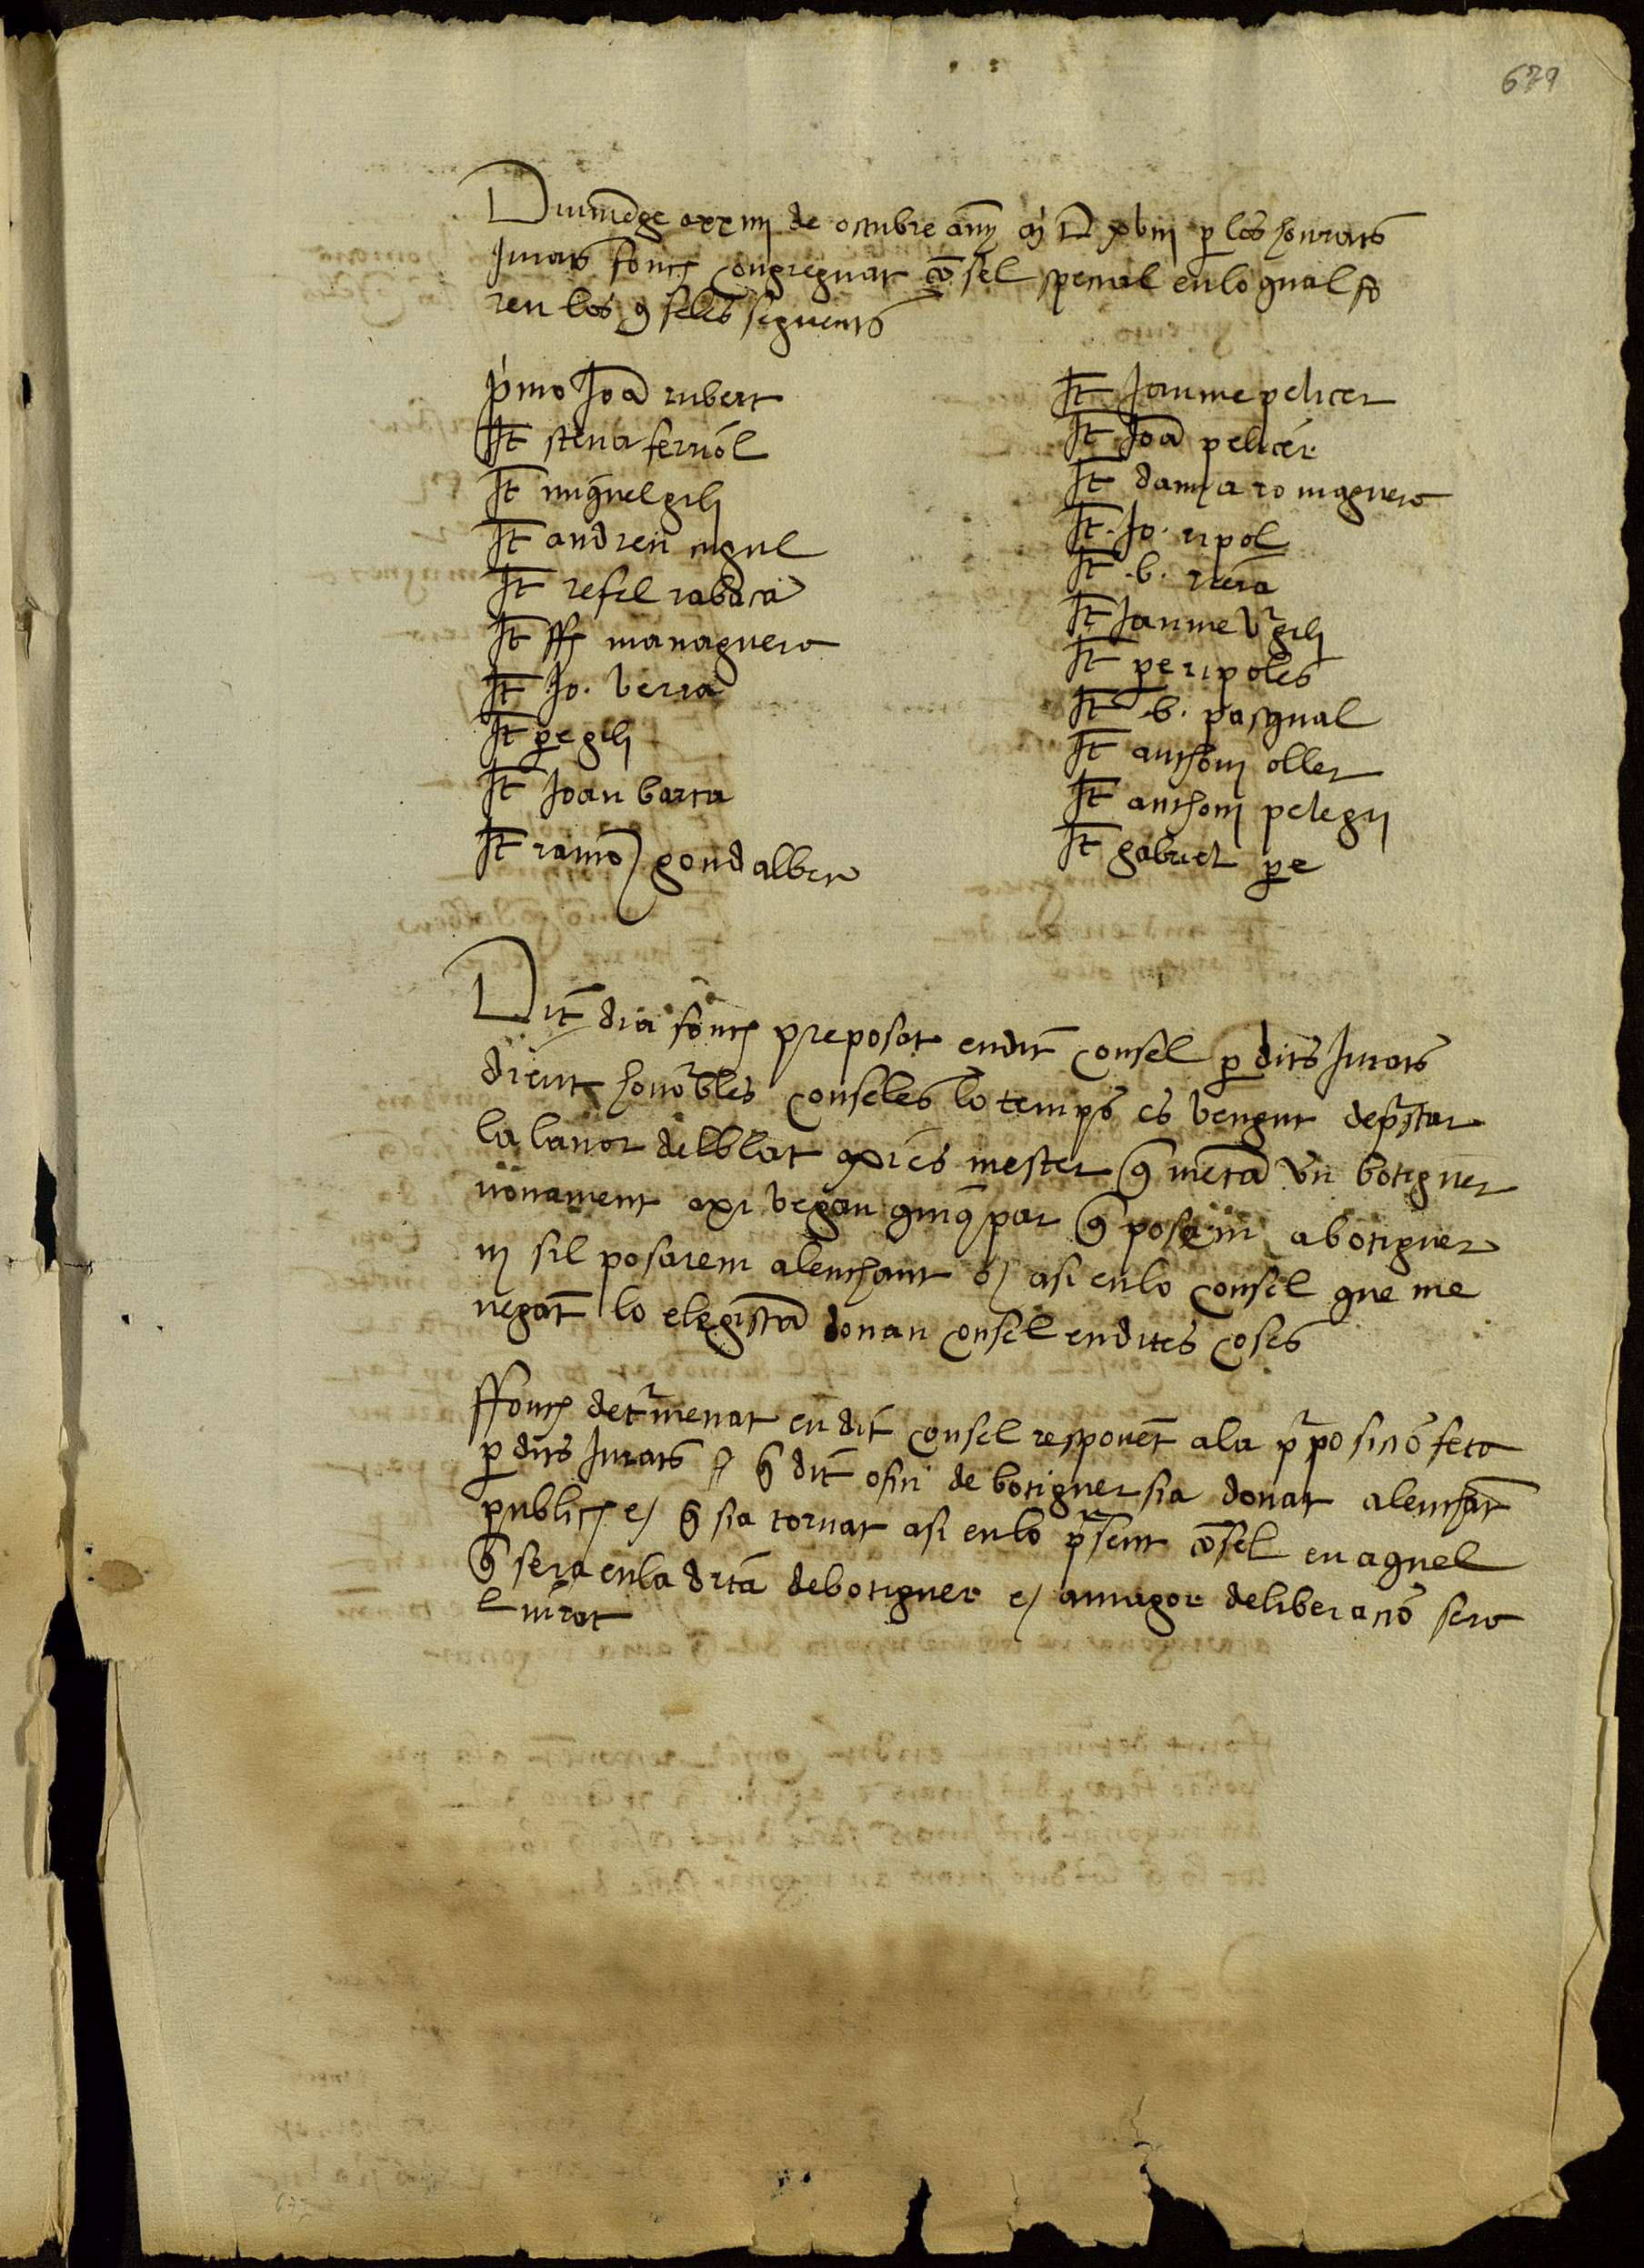 679
Diumēdge a xxiiij de octubre añy M D xviij p los honrats
Jurats fonch congreguat cōsel special en lo qual fo
ren los 9selés seguents
p̄mo Joā rubert
It steua ferriol
It miguel gili
It andreu cugul
It refel rabaca
It ff managuera
It Jo. verra
It pe gili
It Joan barca
It ramō gondalber
It Jaume pelicer
It Joā pelicer
It damya romaguera
It Jo. ripol
It .b. riera
It Jaume gili
It pe ripoles
It .b. pasqual
It anthoni oller
It anthoni pelegri
It gabriel pe
Dit dia fonch preposat en dit consel p dits Jurats
dient honōbles conseles lo temps es vengut de pstar
la lauor del blat axi es mester q̄ metā vn botiguer
nouament axi vegan quiq par q̄ posem a botiguer
ny sil posarem alenchant o asi en lo consel que me
negāt lo elegistā donan consel en dites coses
ffonch detrmenat en dit consel responēt a la pposicio feta
p dits Jurats q̄ dit ofici de botiguer sia donat alenchāt
publich e q̄ sia tornat asi en lo psent cōsel en aquel
q̄ sera en la dita de botiguer e a maior deliberacio sera
liurat